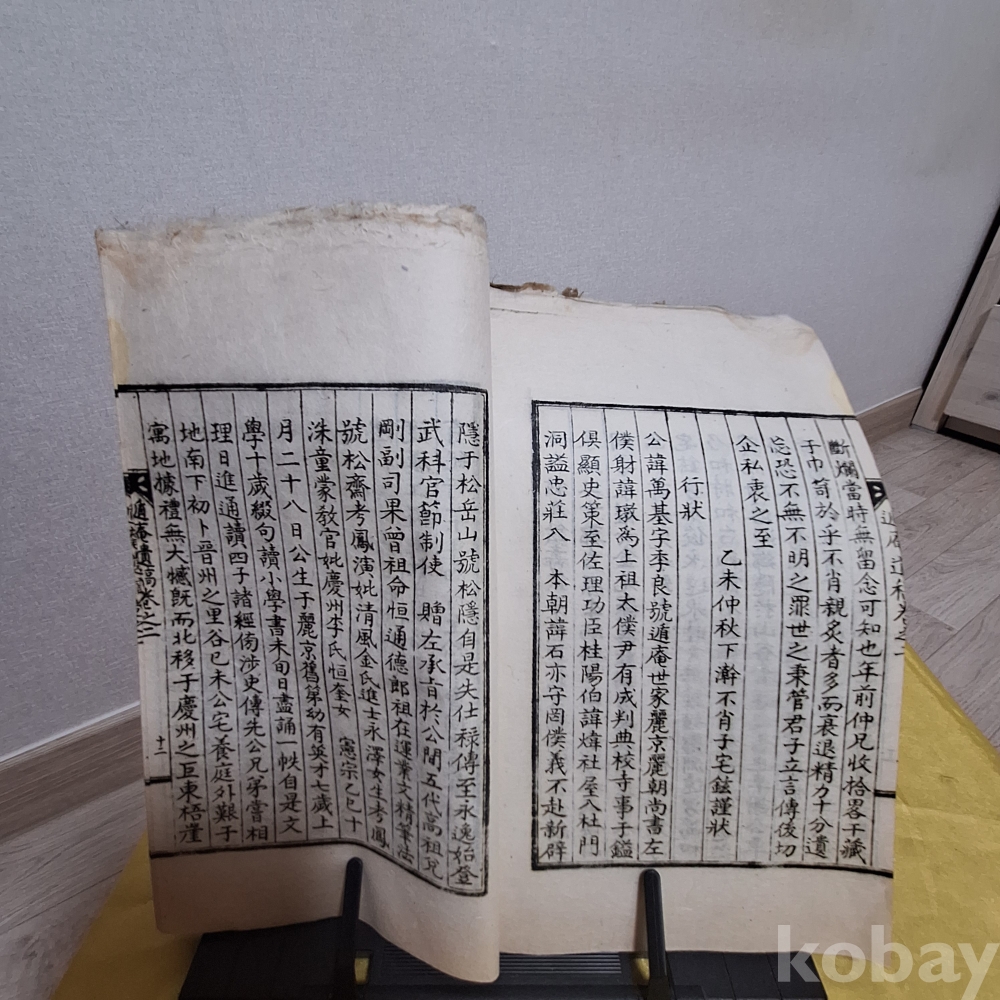 斷爛當時無留念可知也年前仲兄收拾畧干藏
于巾笥於乎不肖親炙者多而衰退精力十分遺
忘恐不無不明之罪世之秉管君子立言傳後切
企私衷之至
乙未仲秋下澣不肖子宅鉉謹狀
行狀
公諱萬基字季良號遁庵世家麗京麗朝尚書左
僕財諱璥爲上祖太僕尹有成判典校寺事子鎰
俱顯史策至佐理功臣桂陽伯諱煒社屋入杜門
洞謚忠莊入 本朝諱石亦守罔僕義不赴新辟
隱于松岳山號松隱自是失仕祿傳至永逸始登
武科官節制使 贈左承旨於公間五代高祖兌
剛副司果曾祖命恒通德郎祖在運業文精筆法
號松齋考鳳演妣清風金氏進士永澤女生考鳳
洙童蒙敎官妣慶州李氏恒奎女 憲宗乙巳十
月二十八日公生于麗京舊第幼有英才七歲上
學十歲綴句讀小學書未旬日盡誦一帙自是文
理日進通讀四子諸經傍涉史傳先公兄弟嘗相
地南下初卜晋州之里谷已未公宅養庭外艱于
寓地據禮無大憾旣而北移于慶州之巨東梧崖
遁庵遺稿卷之二
十二